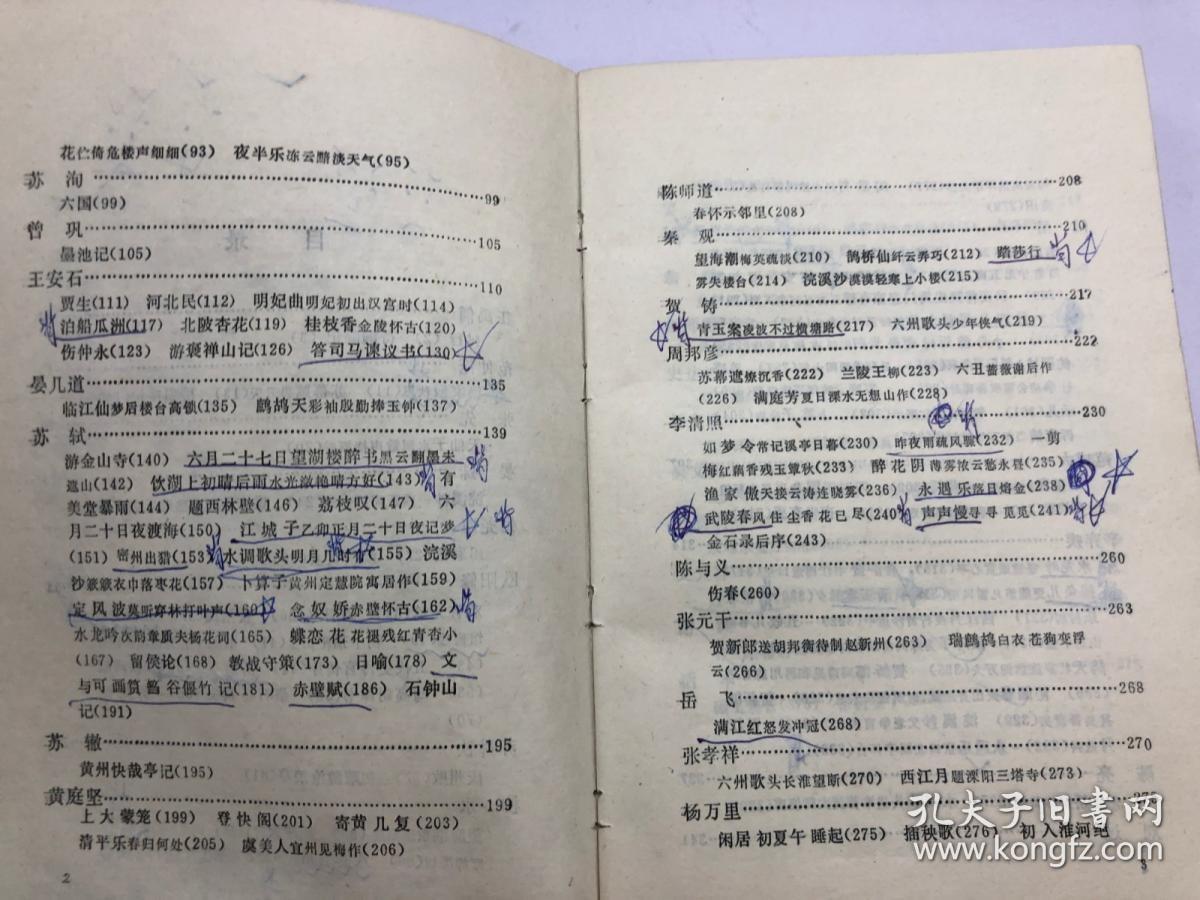 花伫倚危楼声细细(93) 夜半乐冻云黯淡天气(95)
苏 洵……99
六国(99)
曾 巩……105
墨池记(105)
王安石……110
贾生(111) 河北民(112) 明妃曲明妃初出汉宫时(114)
泊船瓜洲(117) 北陂杏花(119) 桂枝香金陵怀古(120)
伤仲永(123) 游褒禅山记(126) 答司马谏议书(130)
晏几道……135
临江仙梦后楼台高锁(135) 鹧鸪天彩袖殷勤捧玉钟(137)
苏 轼……139
游金山寺(140) 六月二十七日望湖楼醉书黑云翻墨未
遮山(142) 饮湖上初晴后雨水光潋滟晴方好(143) 有
美堂暴雨(144) 题西林壁(146) 荔枝叹(147) 六
月二十日夜渡海(150) 江城子乙卯正月二十日夜记梦
(151) 密州出猎(153) 水调歌头明月几时有(155) 浣溪
沙簌簌衣巾落枣花(157) 卜算子黄州定慧院寓居作(159)
定风波莫听穿林打叶声(160) 念奴娇赤壁怀古(162)
水龙吟次韵章质夫杨花词(165) 蝶恋花花褪残红青杏小
(167) 留侯论(168) 教战守策(173) 日喻(178) 文
与可画筼筜谷偃竹记(181) 赤壁赋(186) 石钟山
记(191)
苏 辙……195
黄州快哉亭记(195)
黄庭坚……199
上大蒙笼(199) 登快阁(201) 寄黄几复(203)
清平乐春归何处(205) 虞美人宜州见梅作(206)
2
陈师道……208
春怀示邻里(208)
秦 观……210
望海潮梅英疏淡(210) 鹊桥仙纤云弄巧(212) 踏莎行
雾失楼台(214) 浣溪沙漠漠轻寒上小楼(215)
贺 铸……217
青玉案凌波不过横塘路(217) 六州歌头少年侠气(219)
周邦彦……222
苏幕遮燎沉香(222) 兰陵王柳(223) 六丑蔷薇谢后作
(226) 满庭芳夏日溧水无想山作(228)
李清照……230
如梦令常记溪亭日暮(230) 昨夜雨疏风骤(232) 一剪
梅红藕香残玉簟秋(233) 醉花阴薄雾浓云愁永昼(235)
渔家傲天接云涛连晓雾(236) 永遇乐落日熔金(238)
武陵春风住尘香花已尽(240) 声声慢寻寻觅觅(241)
金石录后序(243)
陈与义……260
伤春(260)
张元干……263
贺新郎送胡邦衡待制赴新州(263) 瑞鹧鸪白衣苍狗变浮
云(266)
岳 飞……268
满江红怒发冲冠(268)
张孝祥……270
六州歌头长淮望断(270) 西江月题溧阳三塔寺(273)
杨万里……
闲居初夏午睡起(275) 插秧歌(276) 初入淮河绝
3
孔夫子旧书网
www.kongfz.com